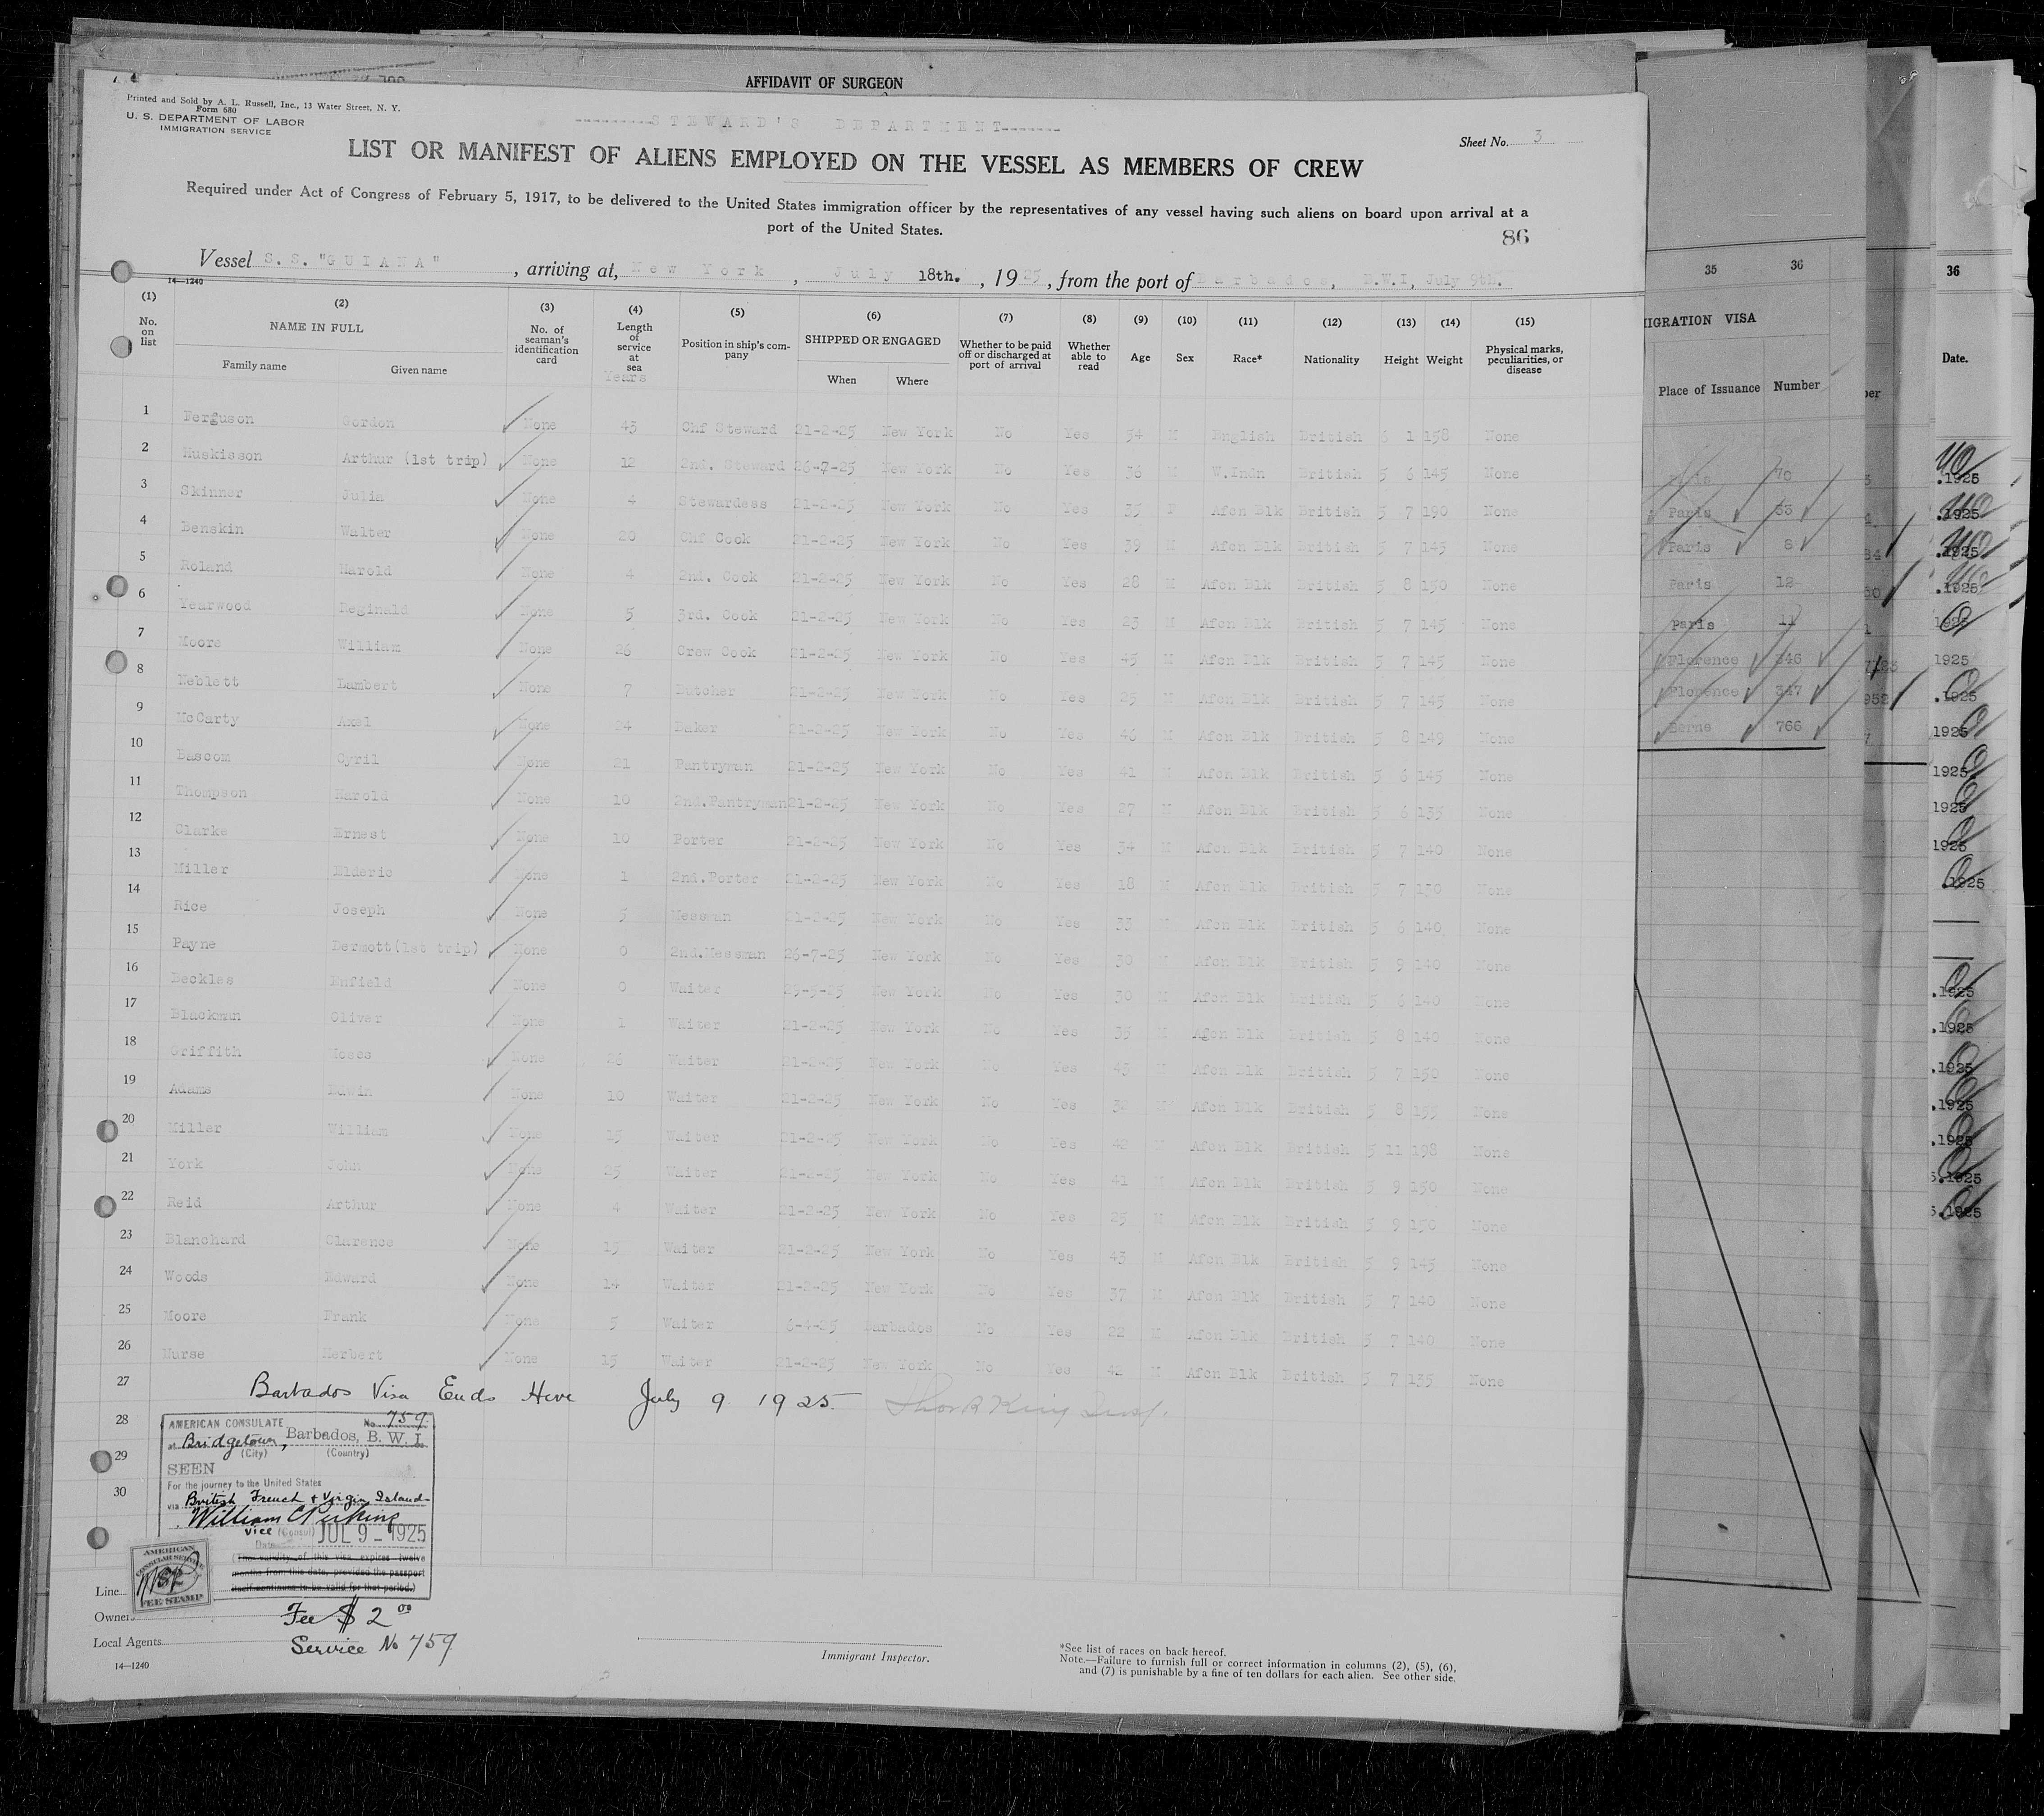 AFFIDAVIT OF SURGEON
Printed and Sold by A. L. Russell, Inc., 13 Water Street, N. Y.
Form 680
U. S. DEPARTMENT OF LABOR
IMMIGRATION SERVICE
STEWARD'S DEPARTMENT
Sheet No. 3
LIST OR MANIFEST OF ALIENS EMPLOYED ON THE VESSEL AS MEMBERS OF CREW
Required under Act of Congress of February 5, 1917, to be delivered to the United States immigration officer by the representatives of any vessel having such aliens on board upon arrival at a
port of the United States.
86
Vessel S.S. "GUIANA", arriving at, New York, July 18th., 1925, from the port of Barbados, B.W.I, July 9th.
14—1240
(1) (2) (3) (4) (5) (6) (7) (8) (9) (10) (11) (12) (13) (14) (15)
No. on list NAME IN FULL Family name Given name No. of seaman's identification card Length of service at sea Years Position in ship's company SHIPPED OR ENGAGED When Where Whether to be paid off or discharged at port of arrival Whether able to read Age Sex Race* Nationality Height Weight Physical marks, peculiarities, or disease
1 Ferguson Gordon None 43 Chf Steward 21-2-25 New York No Yes 54 M English British 5 1 158 None
2 Huskisson Arthur (1st trip) None 12 2nd. Steward 26-7-25 New York No Yes 36 M W.Indn British 5 6 145 None
3 Skinner Julia None 4 Stewardess 21-2-25 New York No Yes 35 Afcn Blk British 5 7 190 None
4 Benskin Walter None 20 Chf Cook 21-2-25 New York No Yes 39 M Afcn Blk British 5 7 145 None
5 Roland Harold None 4 2nd. Cook 21-2-25 New York No Yes 28 M Afcn Blk British 5 8 150 None
6 Yearwood Reginald None 5 3rd. Cook 21-2-25 New York No Yes 23 M Afcn Blk British 5 7 145 None
7 Moore William None 26 Crew Cook 21-2-25 New York No Yes 45 M Afcn Blk British 5 7 145 None
8 Neblett Lambert None 7 Butcher 21-2-25 New York No Yes 25 M Afcn Blk British 5 7 145 None
9 McCarty Axel None 24 Baker 21-2-25 New York No Yes 46 M Afcn Blk British 5 8 149 None
10 Bascom Cyril None 21 Pantryman 21-2-25 New York No Yes 41 M Afcn Blk British 5 6 145 None
11 Thompson Harold None 10 2nd.Pantryman 21-2-25 New York No Yes 27 M Afcn Blk British 5 6 135 None
12 Clarke Ernest None 10 Porter 21-2-25 New York No Yes 34 M Afcn Blk British 5 7 140 None
13 Miller Elderic None 1 2nd.Porter 21-2-25 New York No Yes 18 M Afcn Blk British 5 7 130 None
14 Rice Joseph None 5 Messman 21-2-25 New York No Yes 33 M Afcn Blk British 5 6 140 None
15 Payne Dermott(1st trip) None 0 2nd.Messman 26-7-25 New York No Yes 30 M Afcn Blk British 5 9 140 None
16 Beckles Enfield None 0 Waiter New York No Yes 30 M Afcn Blk British 5 6 140 None
17 Blackman Oliver None 1 Waiter 21-2-25 New York No Yes 35 M Afcn Blk British 5 8 140 None
18 Griffith Moses None 26 Waiter 21-2-25 New York No Yes 43 M Afcn Blk British 5 7 150 None
19 Adams Edwin None 10 Waiter 21-2-25 New York No Yes Afcn Blk British 5 8 155 None
20 Miller William None 15 Waiter 21-2-25 New York No Yes 42 M Afcn Blk British 5 11 198 None
21 York John None 25 Waiter 21-2-25 New York No Yes 41 M Afcn Blk British 5 9 150 None
22 Reid Arthur None 4 Waiter 21-2-25 New York No Yes 25 M Afcn Blk British 5 9 150 None
23 Blanchard Clarence None 15 Waiter 21-2-25 New York No Yes 43 M Afcn Blk British 5 9 145 None
24 Woods Edward None 14 Waiter 21-2-25 New York No Yes 37 M Afcn Blk British 5 7 140 None
25 Moore Frank None 5 Waiter 6-4-25 Barbados No Yes 22 M Afcn Blk British 5 7 140 None
26 Nurse Herbert None 15 Waiter 21-2-25 New York No Yes 42 M Afcn Blk British 5 7 135 None
27 Barbados Visa Ends Here July 9 1925.
28
29
30
AMERICAN CONSULATE No. 759
at Bridgetown, Barbados, B. W. I.
(City) (Country)
SEEN
For the journey to the United States
via British French & Virgin Island
vice (Consul) JUL 9 - 1925
Date
(The validity of this visa expires twelve
months from this date, provided the passport
itself continues to be valid for that period.)
AMERICAN
CONSULAR SERVICE
FEE STAMP
Line
Owners
Local Agents
Fee $ 2 00
Service No 759
14—1240
Immigrant Inspector.
*See list of races on back hereof.
Note.—Failure to furnish full or correct information in columns (2), (5), (6),
and (7) is punishable by a fine of ten dollars for each alien. See other side.
35 36
IGRATION VISA
Place of Issuance Number
Paris 33
Paris 8
Paris 12
Paris 11
Florence 346
Florence 347
Berne 766
36
Date.
.1925
.1925
.1925
.1925
1925
1925
.1925
1925
1925
1925
1925
.1925
.1925
.1925
.1925
.1925
.1925
5.1925
5.1925